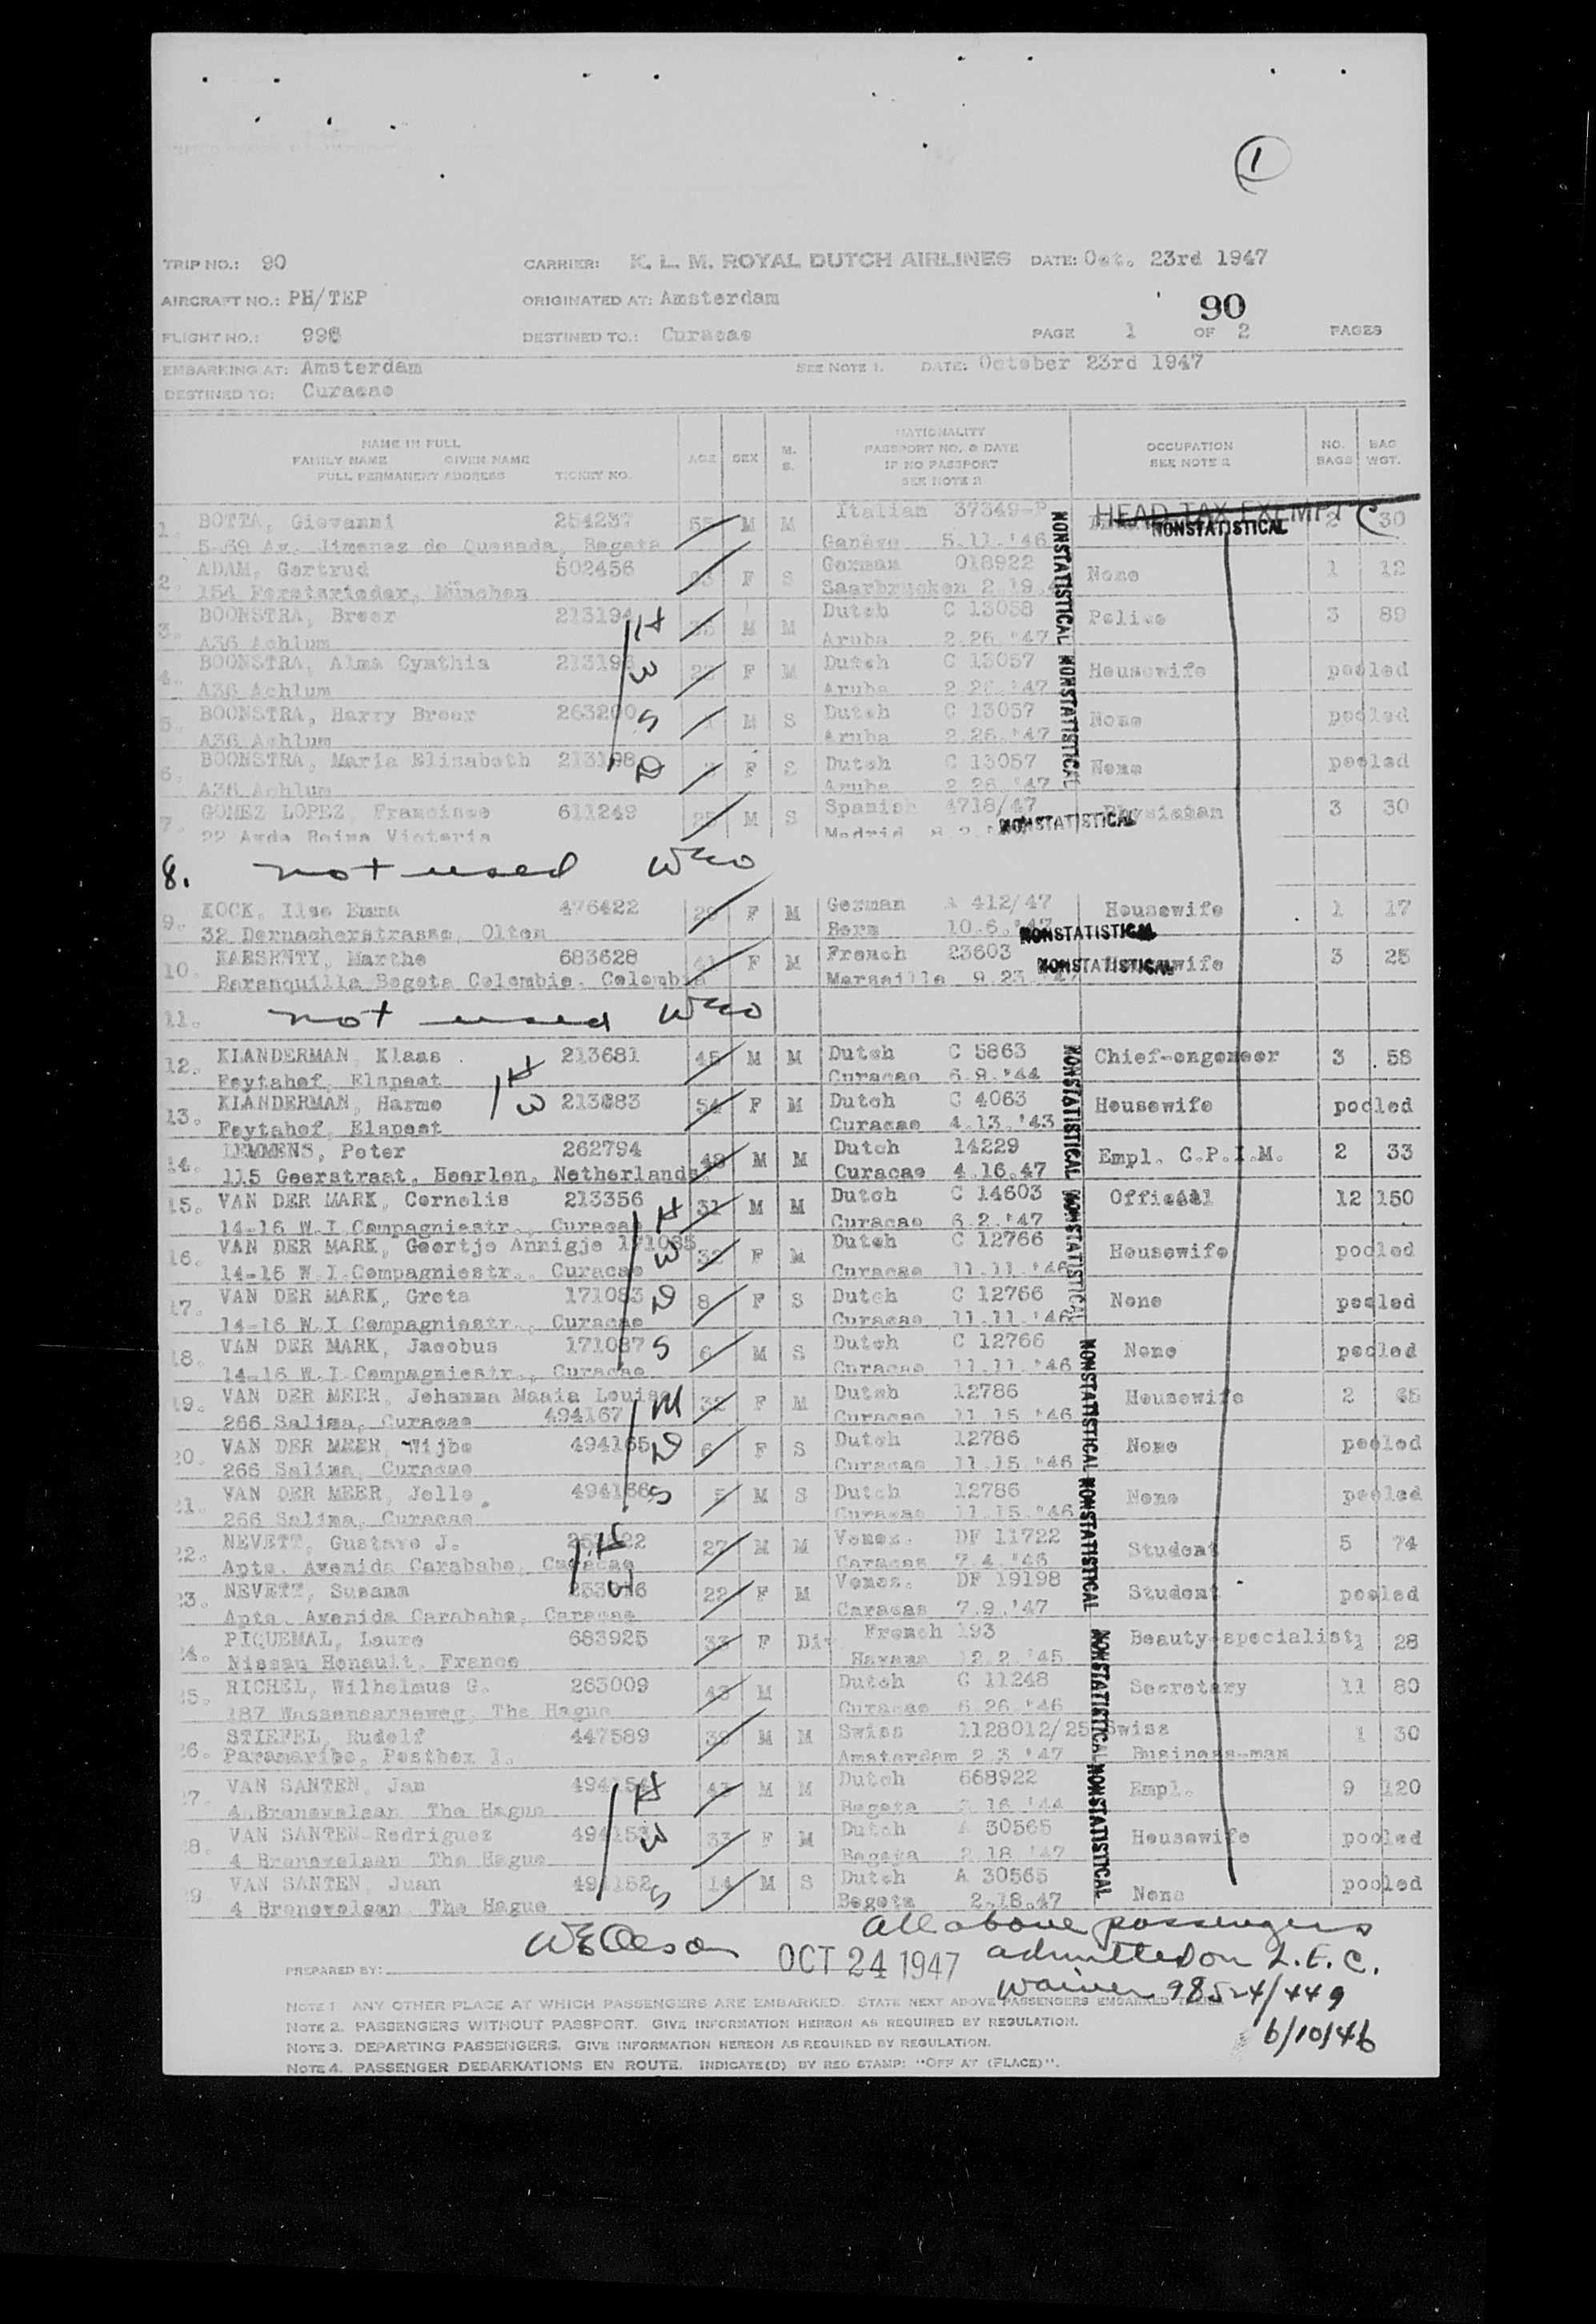 1
TRIP NO.: 90 CARRIER: K. L. M. ROYAL DUTCH AIRLINES DATE: Oct. 23rd 1947
AIRCRAFT NO.: PH/TEP ORIGINATED AT: Amsterdam 90
FLIGHT NO.: 998 DESTINED TO.: Curacao PAGE 1 OF 2 PAGES
EMBARKING AT: Amsterdam SEE NOTE 1. DATE: October 23rd 1947
DESTINED TO: Curacao
NAME IN FULL
FAMILY NAME GIVEN NAME
FULL PERMANENT ADDRESS TICKET NO.
AGE SEX M. S.
NATIONALITY
PASSPORT NO. & DATE
IF NO PASSPORT
SEE NOTE 2
OCCUPATION
SEE NOTE 2
NO. BAGS BAG WGT.
1. BOTTA, Giovanni 254237 55 M M Italian 37349-P HEAD TAX EXEMPT NONSTATISTICAL 2 30
5-39 Av. Jimenez de Quesada, Bogota Genève 5.11.'46
2. ADAM, Gertrud 502456 F S German 018922 None 1 12
154 Forstrieder, München Saarbrucken 2.19.
3. BOONSTRA, Breer 213194 H M M Dutch C 13058 Police 3 89
A36 Achlum Aruba 2.26.'47
4. BOONSTRA, Alma Cynthia 213196 W F M Dutch C 13057 Housewife pooled
A36 Achlum Aruba 2.26.'47
5. BOONSTRA, Harry Breer 263200 S M S Dutch C 13057 None pooled
A36 Achlum Aruba 2.26.'47
6. BOONSTRA, Maria Elisabeth 213198 D F S Dutch C 13057 None pooled
A36 Achlum Aruba 2.26.'47
7. GOMEZ LOPEZ, Francisco 611249 25 M S Spanish 4718/47 Physician 3 30
22 Avda Reina Victoria Madrid NONSTATISTICAL
8. not used WEO
9. KOCK, Ilse Emma 476422 29 F M German A 412/47 Housewife 1 17
32 Dornacherstrasse, Olten Bern 10.6.'47 NONSTATISTICAL
10. KABSENTY, Marthe 683628 41 F M French 23603 NONSTATISTICAL 3 25
Baranquilla Bogota Colombie. Colombia Marseille 9.23.'47
11. not used WEO
12. KLANDERMAN, Klaas 213681 H 45 M M Dutch C 5863 Chief-engeneer 3 58
Feytahof, Elspeet Curacao 6.9.'44
13. KLANDERMAN, Harme W 213683 54 F M Dutch C 4063 Housewife pooled
Feytahof, Elspeet Curacao 4.13.'43
14. LEMMENS, Peter 262794 48 M M Dutch 14229 Empl. C.P.I.M. 2 33
115 Geerstraat, Heerlen, Netherlands Curacao 4.16.47
15. VAN DER MARK, Cornelis 213356 H 31 M M Dutch C 14603 Official 12 150
14-16 W.I.Compagniestr., Curacao Curacao 6.2.'47
16. VAN DER MARK, Geertje Annigje 171085 W 32 F M Dutch C 12766 Housewife pooled
14-16 W.I.Compagniestr., Curacao Curacao 11.11.'46
17. VAN DER MARK, Greta 171083 D 8 F S Dutch C 12766 None pooled
14-16 W.I.Compagniestr., Curacao Curacao 11.11.'46
18. VAN DER MARK, Jacobus 171087 S 6 M S Dutch C 12766 None pooled
14-16 W.I.Compagniestr., Curacao Curacao 11.11.'46
19. VAN DER MEER, Johanna Maaia Louise M 32 F M Dutch 12786 Housewife 2 45
266 Salina, Curacao 494167 Curacao 11.15.'46
20. VAN DER MEER, Wijbe 494165 D 6 F S Dutch 12786 None pooled
266 Salina, Curacao Curacao 11.15.'46
21. VAN DER MEER, Jelle. 494166 S 5 M S Dutch 12786 None pooled
266 Salina, Curacao Curacao 11.15.'46
22. NEVETT, Gustavo J. H 27 M M Venez. DF 11722 Student 5 74
Apts. Avenida Carababe, Caracas Caracas 7.4.'46
23. NEVETT, Susana W 22 F M Venez. DF 19198 Student pooled
Apts. Avenida Carababe, Caracas Caracas 7.9.'47
24. PIQUEMAL, Laure 683925 33 F Div French 193 Beauty-specialist 1 28
Nissau Henault, France Havana 12.2.'45
25. RICHEL, Wilhelmus G. 263009 43 M Dutch C 11248 Secretary 11 80
187 Wassenaarseweg, The Hague Curacao 6.26.'46
26. STIEFEL, Rudolf 447589 39 M M Swiss 1128012/25 Swiss 1 30
Paramaribo, Postbox 1. Amsterdam 2.3.'47 Business-man
27. VAN SANTEN, Jan 494154 H M M Dutch 668922 Empl. 9 120
4 Bronovolaan The Hague Bogota 16.'44
28. VAN SANTEN-Rodriguez 494153 W 33 F M Dutch A 30565 Housewife pooled
4 Bronovolaan The Hague Bogota 2.18.'47
29. VAN SANTEN, Juan 494152 S 14 M S Dutch A 30565 None pooled
4 Bronovolaan The Hague Bogota 2.18.47
NONSTATISTICAL NONSTATISTICAL
NONSTATISTICAL NONSTATISTICAL
NONSTATISTICAL NONSTATISTICAL
NONSTATISTICAL NONSTATISTICAL
All above passengers
PREPARED BY: WEOlson OCT 24 1947 admitted on L.E.C.
waiver 98524/449
6/10/46
NOTE 1. ANY OTHER PLACE AT WHICH PASSENGERS ARE EMBARKED. STATE NEXT ABOVE PASSENGERS EMBARKED THERE.
NOTE 2. PASSENGERS WITHOUT PASSPORT. GIVE INFORMATION HEREON AS REQUIRED BY REGULATION.
NOTE 3. DEPARTING PASSENGERS. GIVE INFORMATION HEREON AS REQUIRED BY REGULATION.
NOTE 4. PASSENGER DEBARKATIONS EN ROUTE. INDICATE(D) BY RED STAMP: "OFF AT (PLACE)".